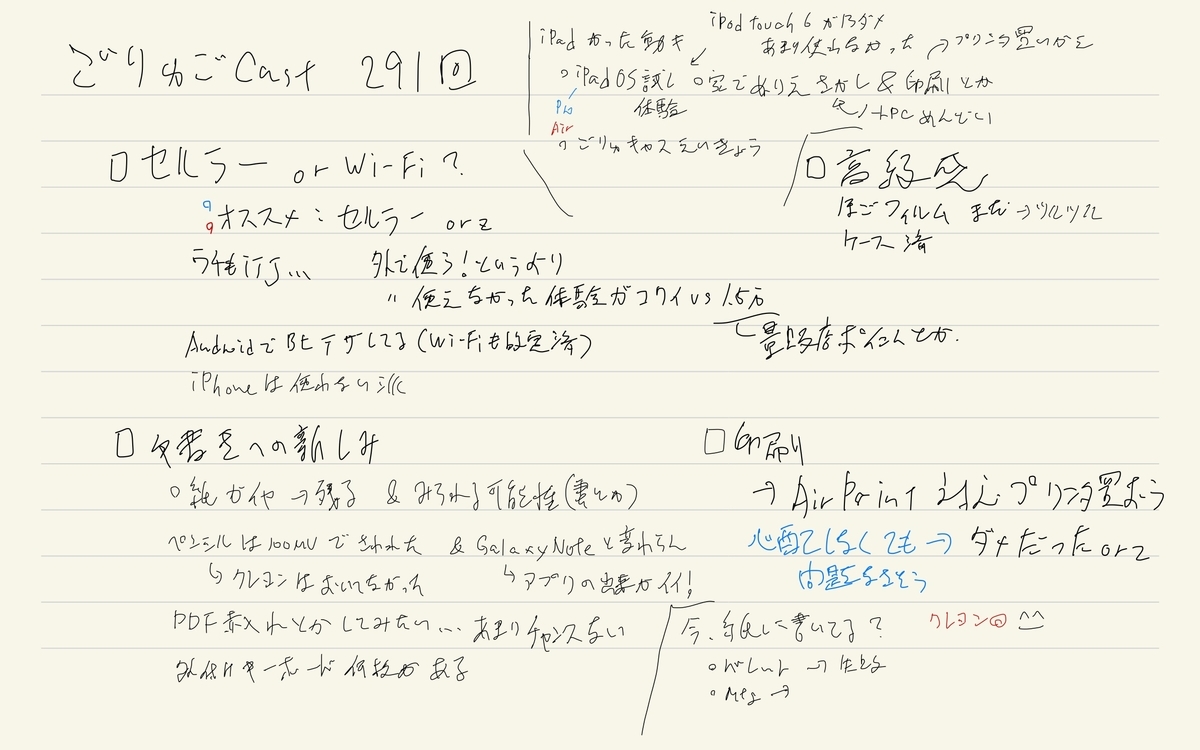 ごりゅごCast 291回
iPad かった動き
iPod touch 6 がダメ
あまり使わなかった → プリンタ置いかえ
○ iPad OS 試し 体験
○ 空でぬりえ さがし & 印刷 とか
Pro
Air
ノートPC めんどい
○ ごりゅキャス えいきょう
□ セルラー or Wi-Fi?
オススメ: セルラー orz
□ 高級感
ほごフィルム まだ → ツルツル
ケース 済
うちもIIJ... 外で使う!というより
〃 使えなかった体験がコワイ vs 1.5万
量販店ポイントとか.
Androidで BT テザしてる (Wi-Fiも設定済)
iPhoneは使わない派
□ 手書きへの親しみ
○ 紙がイヤ → 残る & みられる可能性 (妻とか)
ペンシルは100MVできわれた & Galaxy Noteと変わらん
↳ クレヨンはおいてなかった
↳ アプリの出来がイイ!
PDF赤入れとかしてみたい... あまりチャンスない
外付けキーボード 何枚かある
□ 印刷
→ AirPrint 対応 プリンタ買おう
心配しなくても → ダメだった orz
問題なさそう
今、紙に書いてる? クレヨン@ ^^
○ バレット →
○ Mtg →